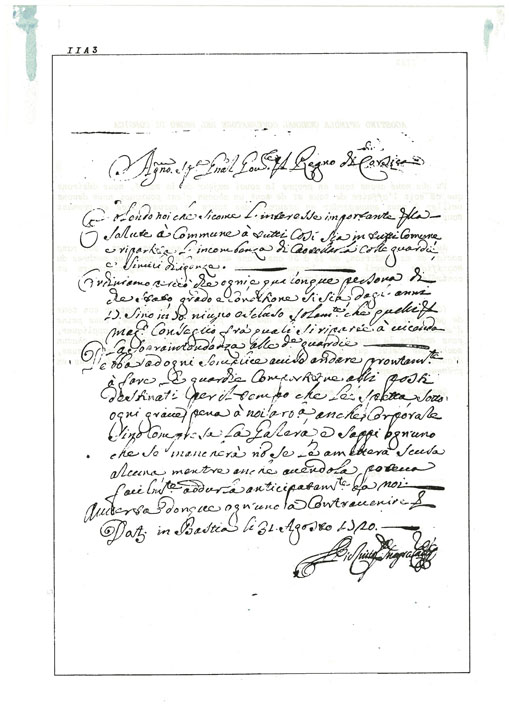 IIA3
Agno. Gnãl Gov.re Regno di Corsica
Volendo noi che sicome l'interesse importante della
salute è commune à tutti così sia in tutti comune
e ripartita l'incombenza di le guardie
e simili diligenze.
Ordiniamo perciò che ogni e qualonque persona di
che stato grado e conditione si sia dagl' anni
sino in niuno escluso solamte che quelli
Mag.co Conseglio frà quali si riparte à vicenda
la sopraintendenza alle guardie
debba ad ogni semplice aviso andare prontamte
à fare le guardie alli posti
destinati per il tempo che le spetta sotto
ogni grave pena à noi arb.a anche Corporale
sino compresa La Galera e sappi ognuno
che se mancherà no se le ametterà scusa
alcuna mentre anche avendola poteva
addurla anticipatamte da noi.
Averta donque ognuno à Contravenire
Dat. in Bastia li 31 Agosto